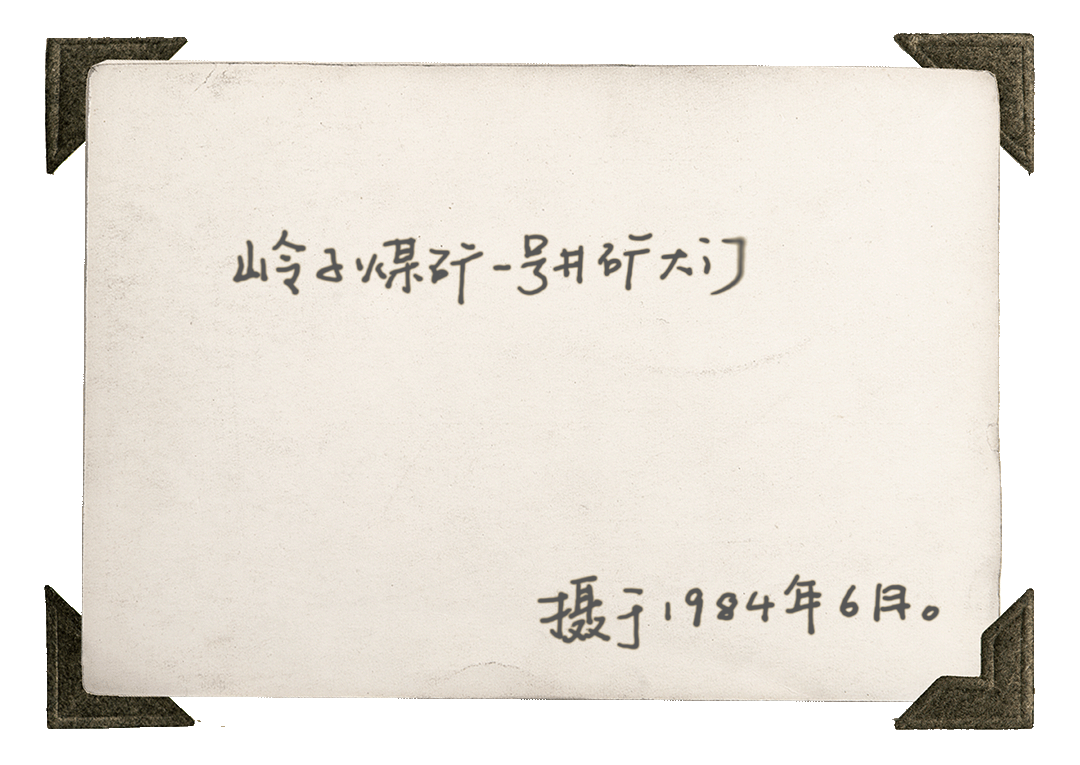 岭子煤矿一号井矿大门
摄于1984年6月。